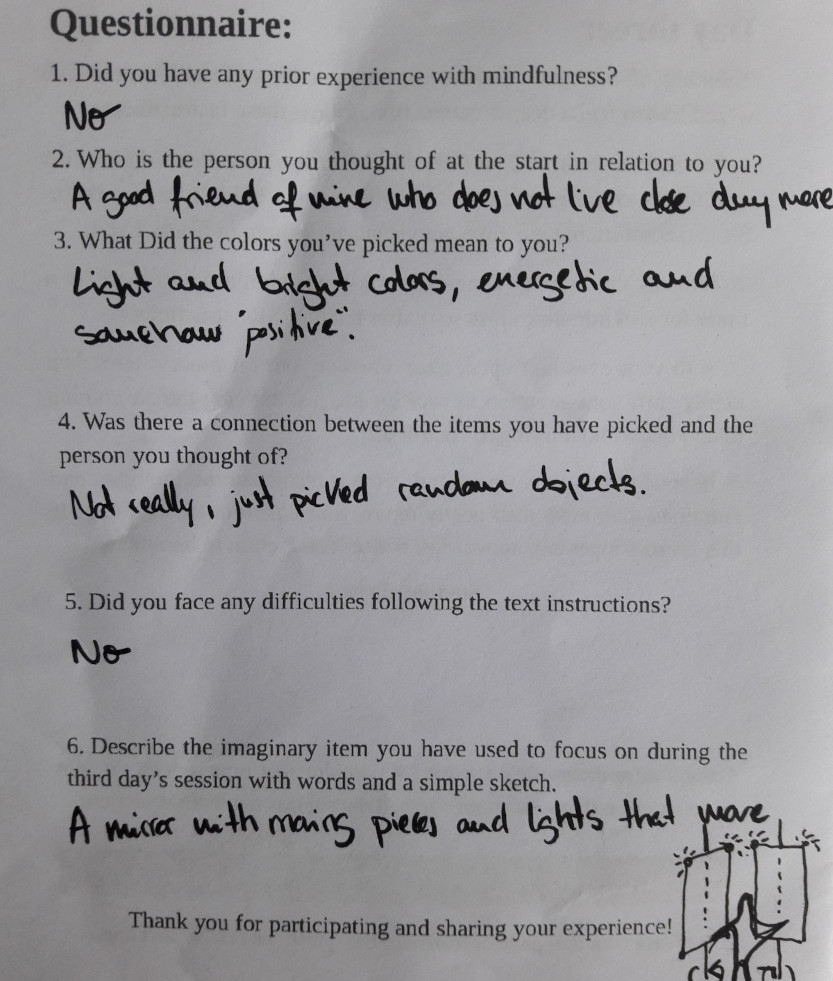 Questionnaire:
1. Did you have any prior experience with mindfulness?
No
2. Who is the person you thought of at the start in relation to you?
A good friend of mine who does not live close any more
3. What Did the colors you’ve picked mean to you?
Light and bright colors, energetic and
somehow "positive".
4. Was there a connection between the items you have picked and the
person you thought of?
Not really, just picked random objects.
5. Did you face any difficulties following the text instructions?
No
6. Describe the imaginary item you have used to focus on during the
third day’s session with words and a simple sketch.
A mirror with moving pieces and lights that move
Thank you for participating and sharing your experience!